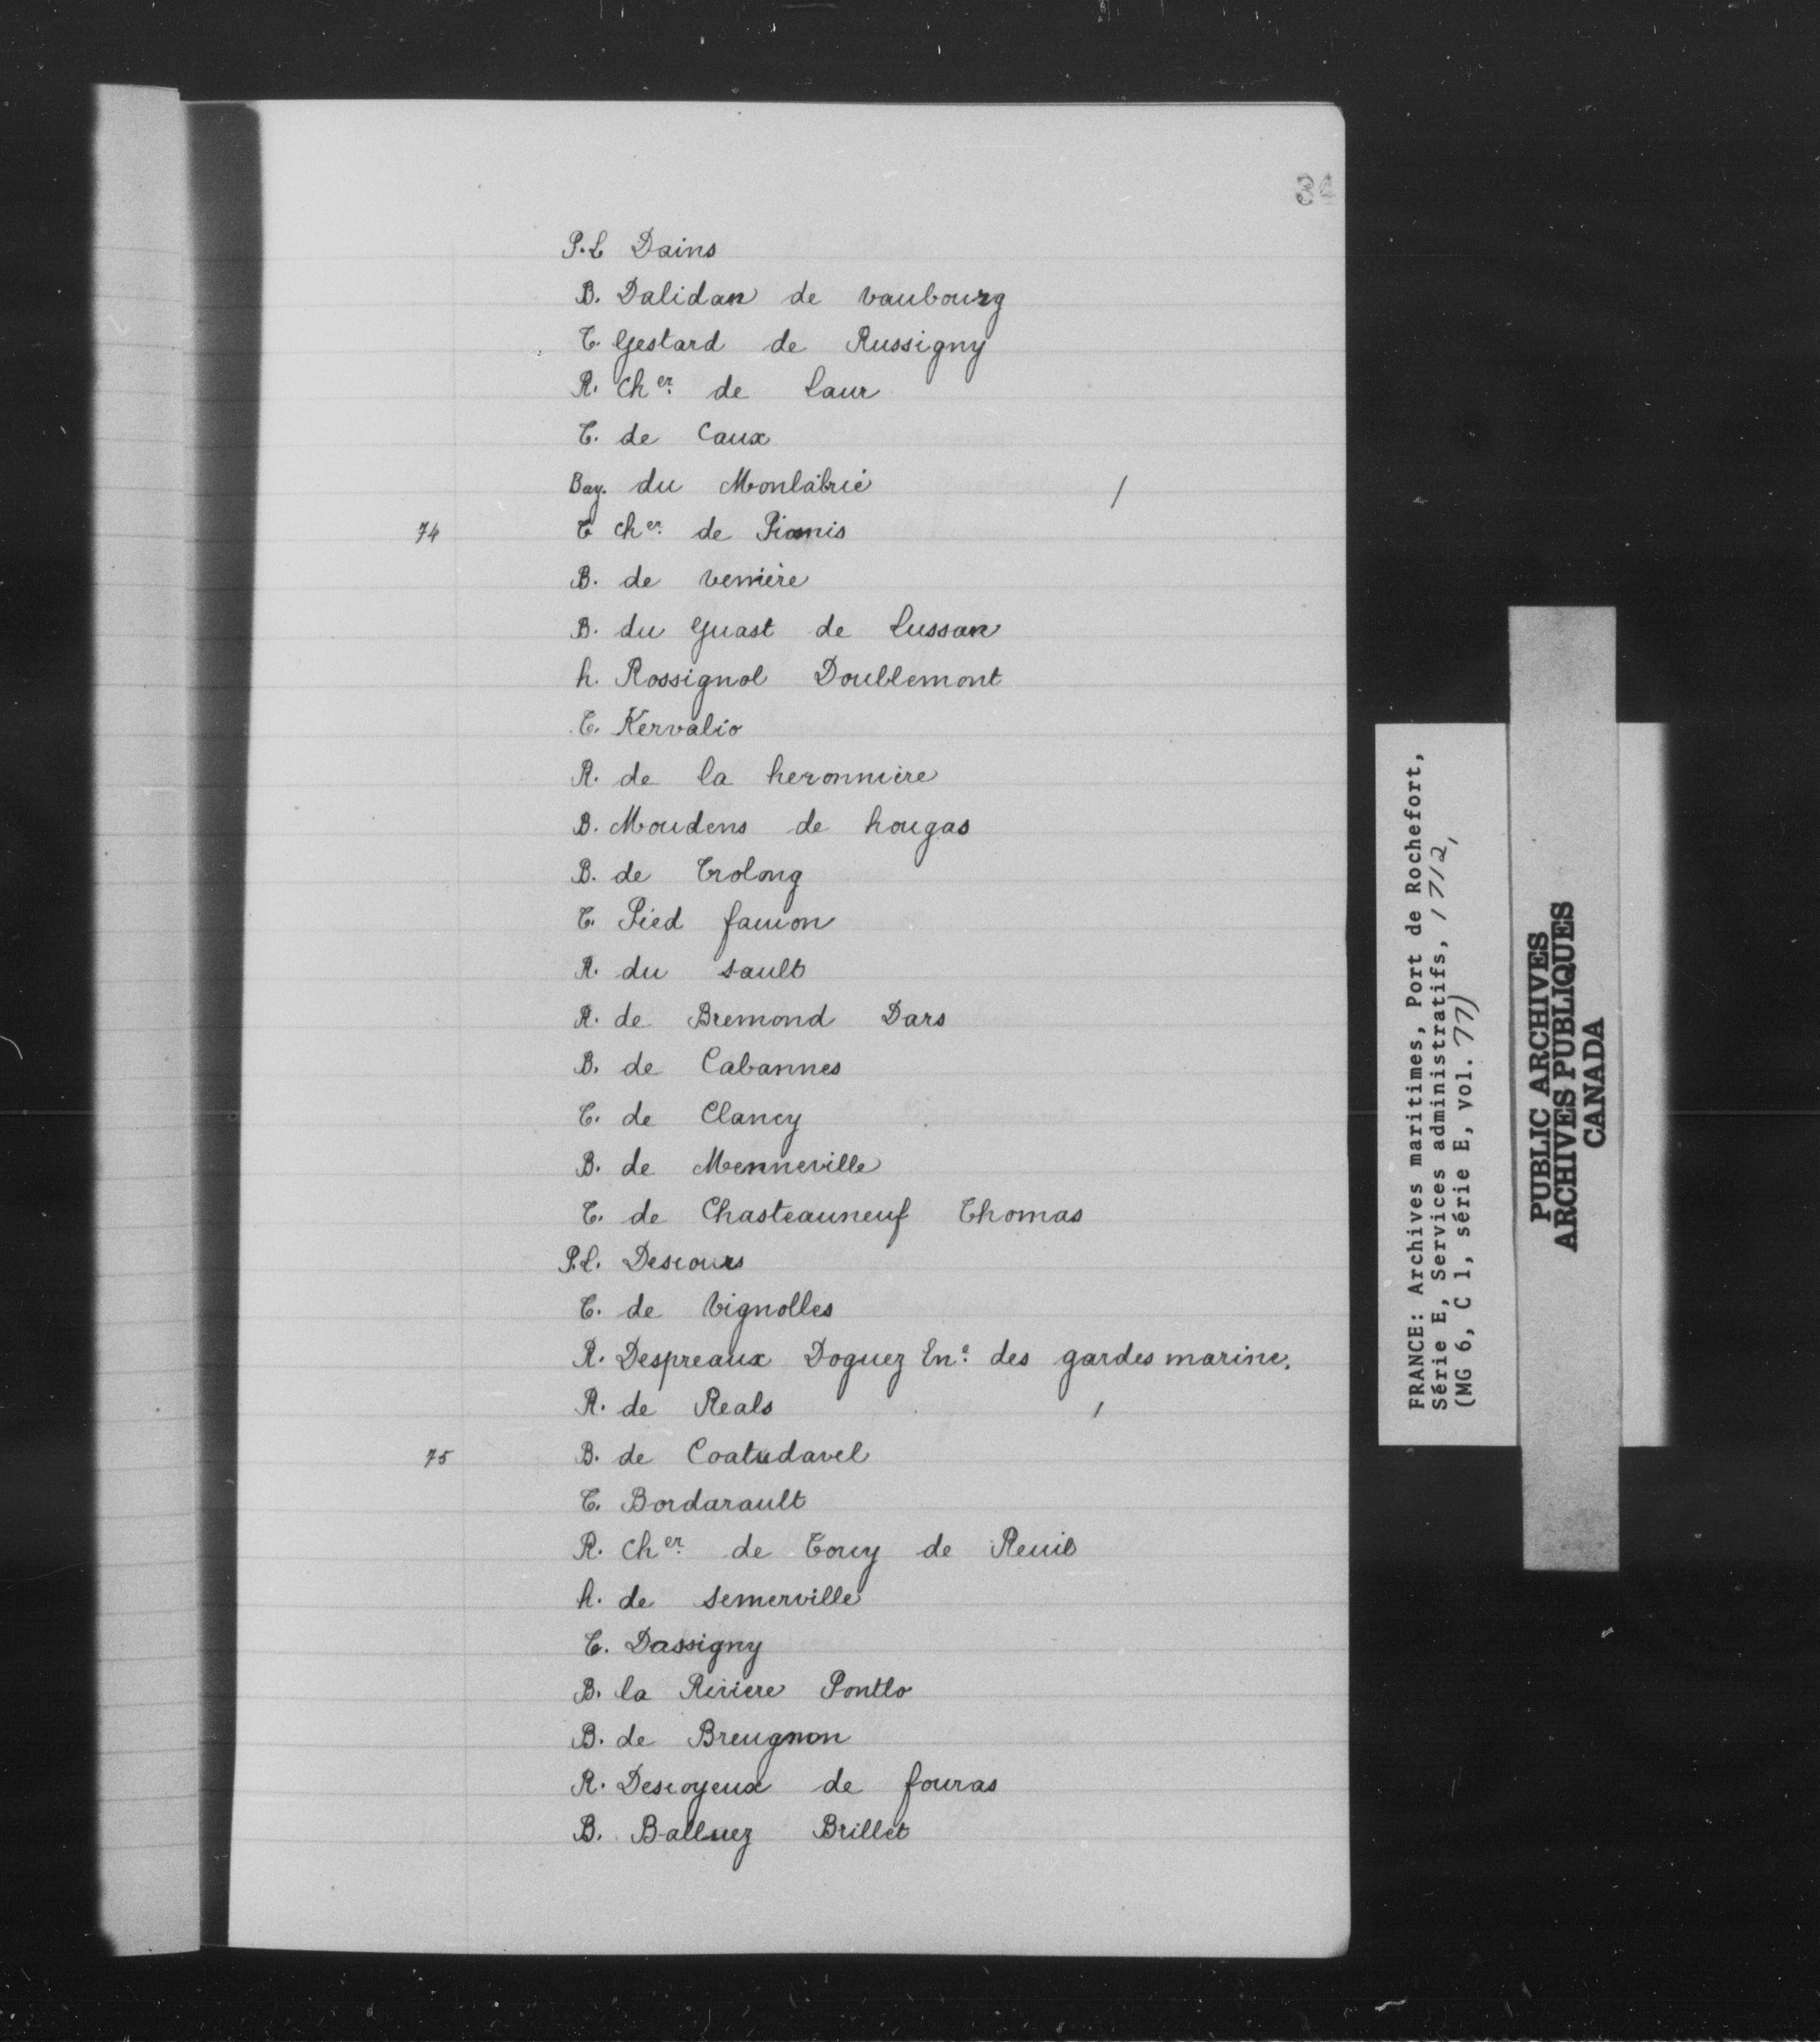 34
P.L Dains
B. Dalidan de vaubourg
T. Gestard de Russigny
R. Cher. de Laur
T. de Caux
Bay. du Monlabrié /
74 T Cher. de Piosnis
B. de verrière
B. du Guast de Lussan
h. Rossignol Doublemont
T. Kervalio
R. de la heronniere
B. Moudens de hougas
B. de Trolong
T. Pied faucon
R. du sault
R. de Bremond Dars
B. de Cabannes
T. de Clancy
B. de Menneville
T. de Chasteauneuf Thomas
P.L. Descours
T. de Vignolles
R. Despreaux Doguez Ene. des gardes marine.
R. de Reals /
75 B. de Coatudavel
T. Bordarault
R. Cher. de Torcy de Reuil
h. de semerville
T. Dassigny
B. la Riviere Pontlo
B. de Breugnon
R. Descoyeux de fouras
B. Balluez Brillet
FRANCE: Archives maritimes, Port de Rochefort,
Série E, Services administratifs, 1712,
(MG 6, C 1, série E, vol. 77)
PUBLIC ARCHIVES
ARCHIVES PUBLIQUES
CANADA